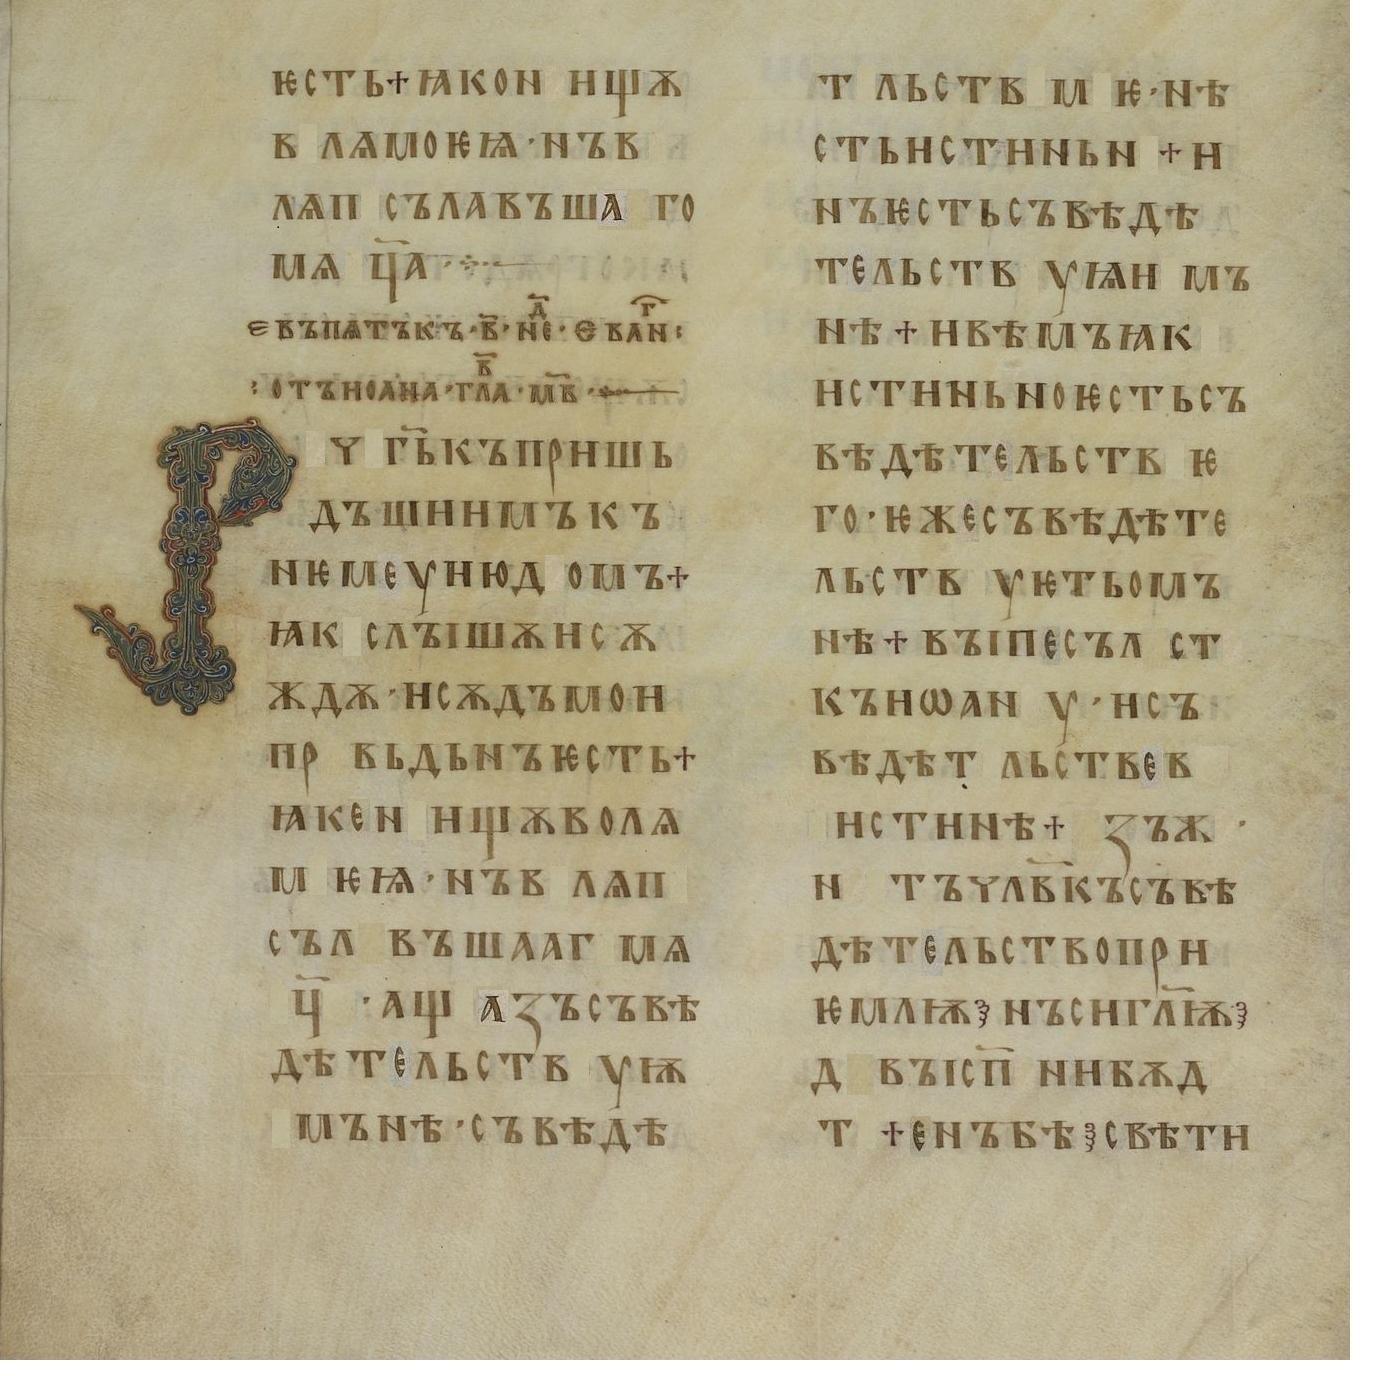 ѥсть+ꙗкон ищѫ
в лѧмоѥѩ·нъв
лѧп сълавъша го
мѧ ц҃а·
є въпѧтъкъ·в҃·нєⷣ·єваⷢ҇н:
:отъиоана·глаⷡ·м҃в·
Р ү г҃ькъпришь
дъшиимъкъ
нѥмєѹиюд омъ+
ꙗк слъішѫис ѫ
ждѫ·исѫдъмои
пр вьдьнъѥсть+
ꙗкєн ищѫволѧ
м ѥѩ·нъв лѧп
същл въшааг мѧ
ц҃ ·ащ азъсъвѣ
дѣтєльств ѹѭ
мънѣ·съвѣдѣ
т льств м ѥ·нѣ
стьистиньн +и
нъѥстьсъвѣдѣ
тєльств ѹꙗи мъ
нѣ+ивѣмъꙗк
истиньноѥстьсъ
вѣдѣтєльств ѥ
го·ѥжєсъвѣдѣтє
льств ѹѥтьомъ
нѣ+въіпєсъл ст
къиѡан ѹ·исъ
вѣдѣт льствєв
истинѣ+ зъж ·
н тъүл҃вкъсъвѣ
дѣтєльствопри
ѥмлѭ꙳нъсигл҃ѭ꙳
д въісп҃ нибѫд
т +єнъбѣ꙳свѣти